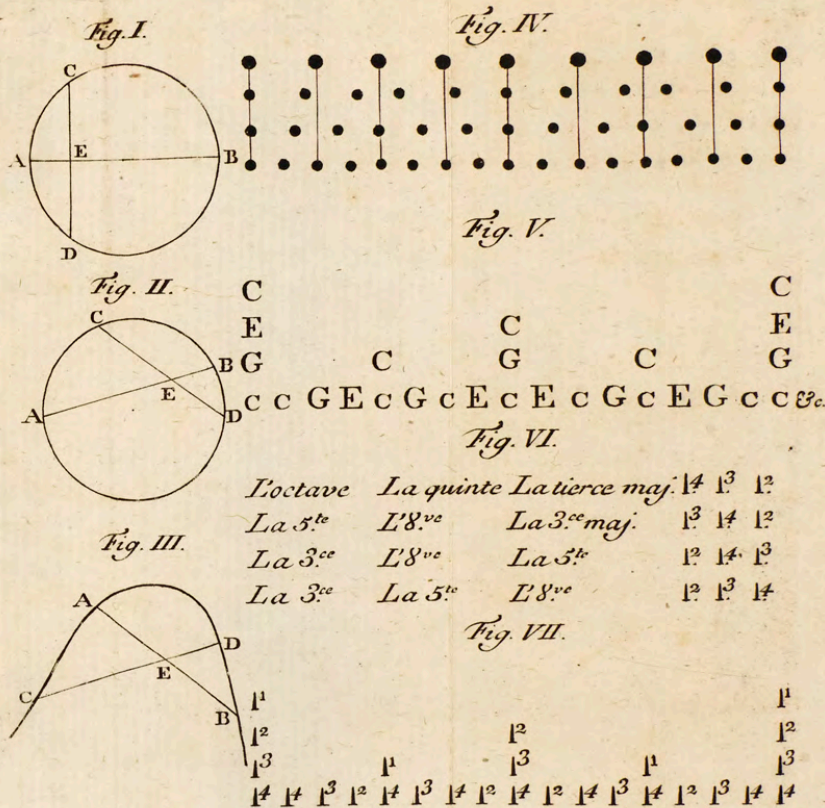 Fig. I.
C
A E B
D
Fig. IV.
Fig. V.
Fig. II.
C
B
E
A D
C C
E C E
G C G C G
c c G E c G c E c E c G c E G c c &c.
Fig. VI.
L'octave La quinte La tierce maj. 1.4 1.3 1.2
La 5.te L'8.ve La 3.ce maj. 1.3 1.4 1.2
La 3.ce L'8.ve La 5.te 1.2 1.4 1.3
La 3.ce La 5.te L'8.ve 1.2 1.3 1.4
Fig. III.
A
D
E
C
B
Fig. VII.
1.1 1.1
1.2 1.2 1.2
1.3 1.1 1.3 1.1 1.3
1.4 1.4 1.3 1.2 1.4 1.3 1.4 1.2 1.4 1.2 1.4 1.3 1.4 1.2 1.3 1.4 1.4